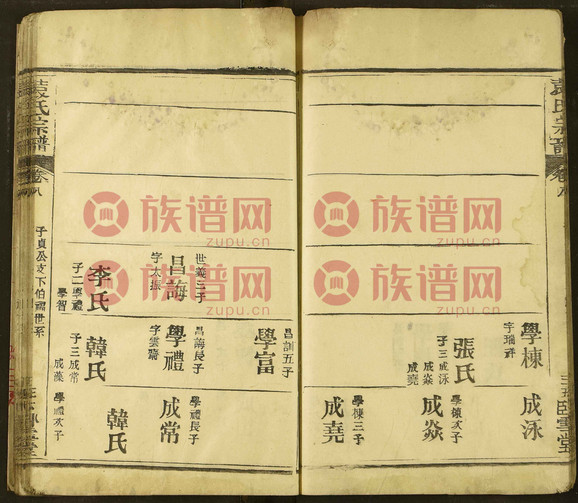 袁氏宗譜
卷八
學棟
字瑞軒
張氏
子三成泳
成焱
成堯
成泳
學棟次子
成焱
學棟三子
成堯
臥雪堂
昌訓五子
學富
世義三子
昌誨
字太振
李氏
子二學禮
學智
昌誨長子
學禮
字雲齋
韓氏
子三成常
成藻
學禮長子
成常
韓氏
學禮次子
子貞公支下伯禰世系
袁氏宗譜
卷八
族谱网
zupu.cn
族谱网
zupu.cn